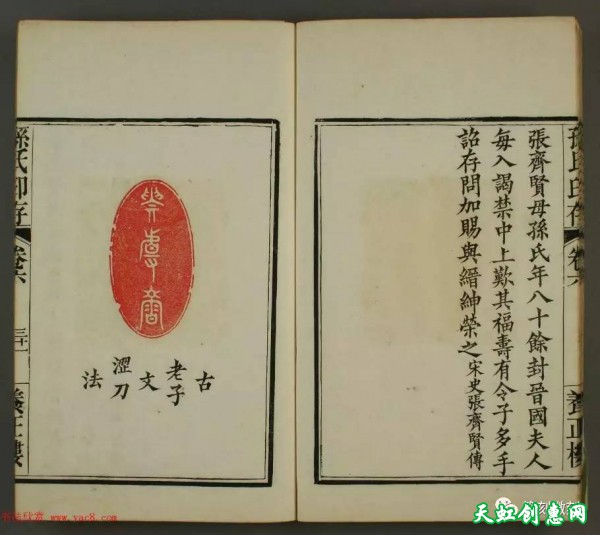 孫氏印存
卷六
養正樓
張齊賢母孫氏年八十餘封晉國夫人
每入謁禁中上歎其福壽有令子多手
詔存問加賜與縉紳榮之宋史張齊賢傳
古
老子
文
澀刀
法
孫氏印存
卷六
養正樓
书法欣赏 www.yac8.com
天虹创惠网